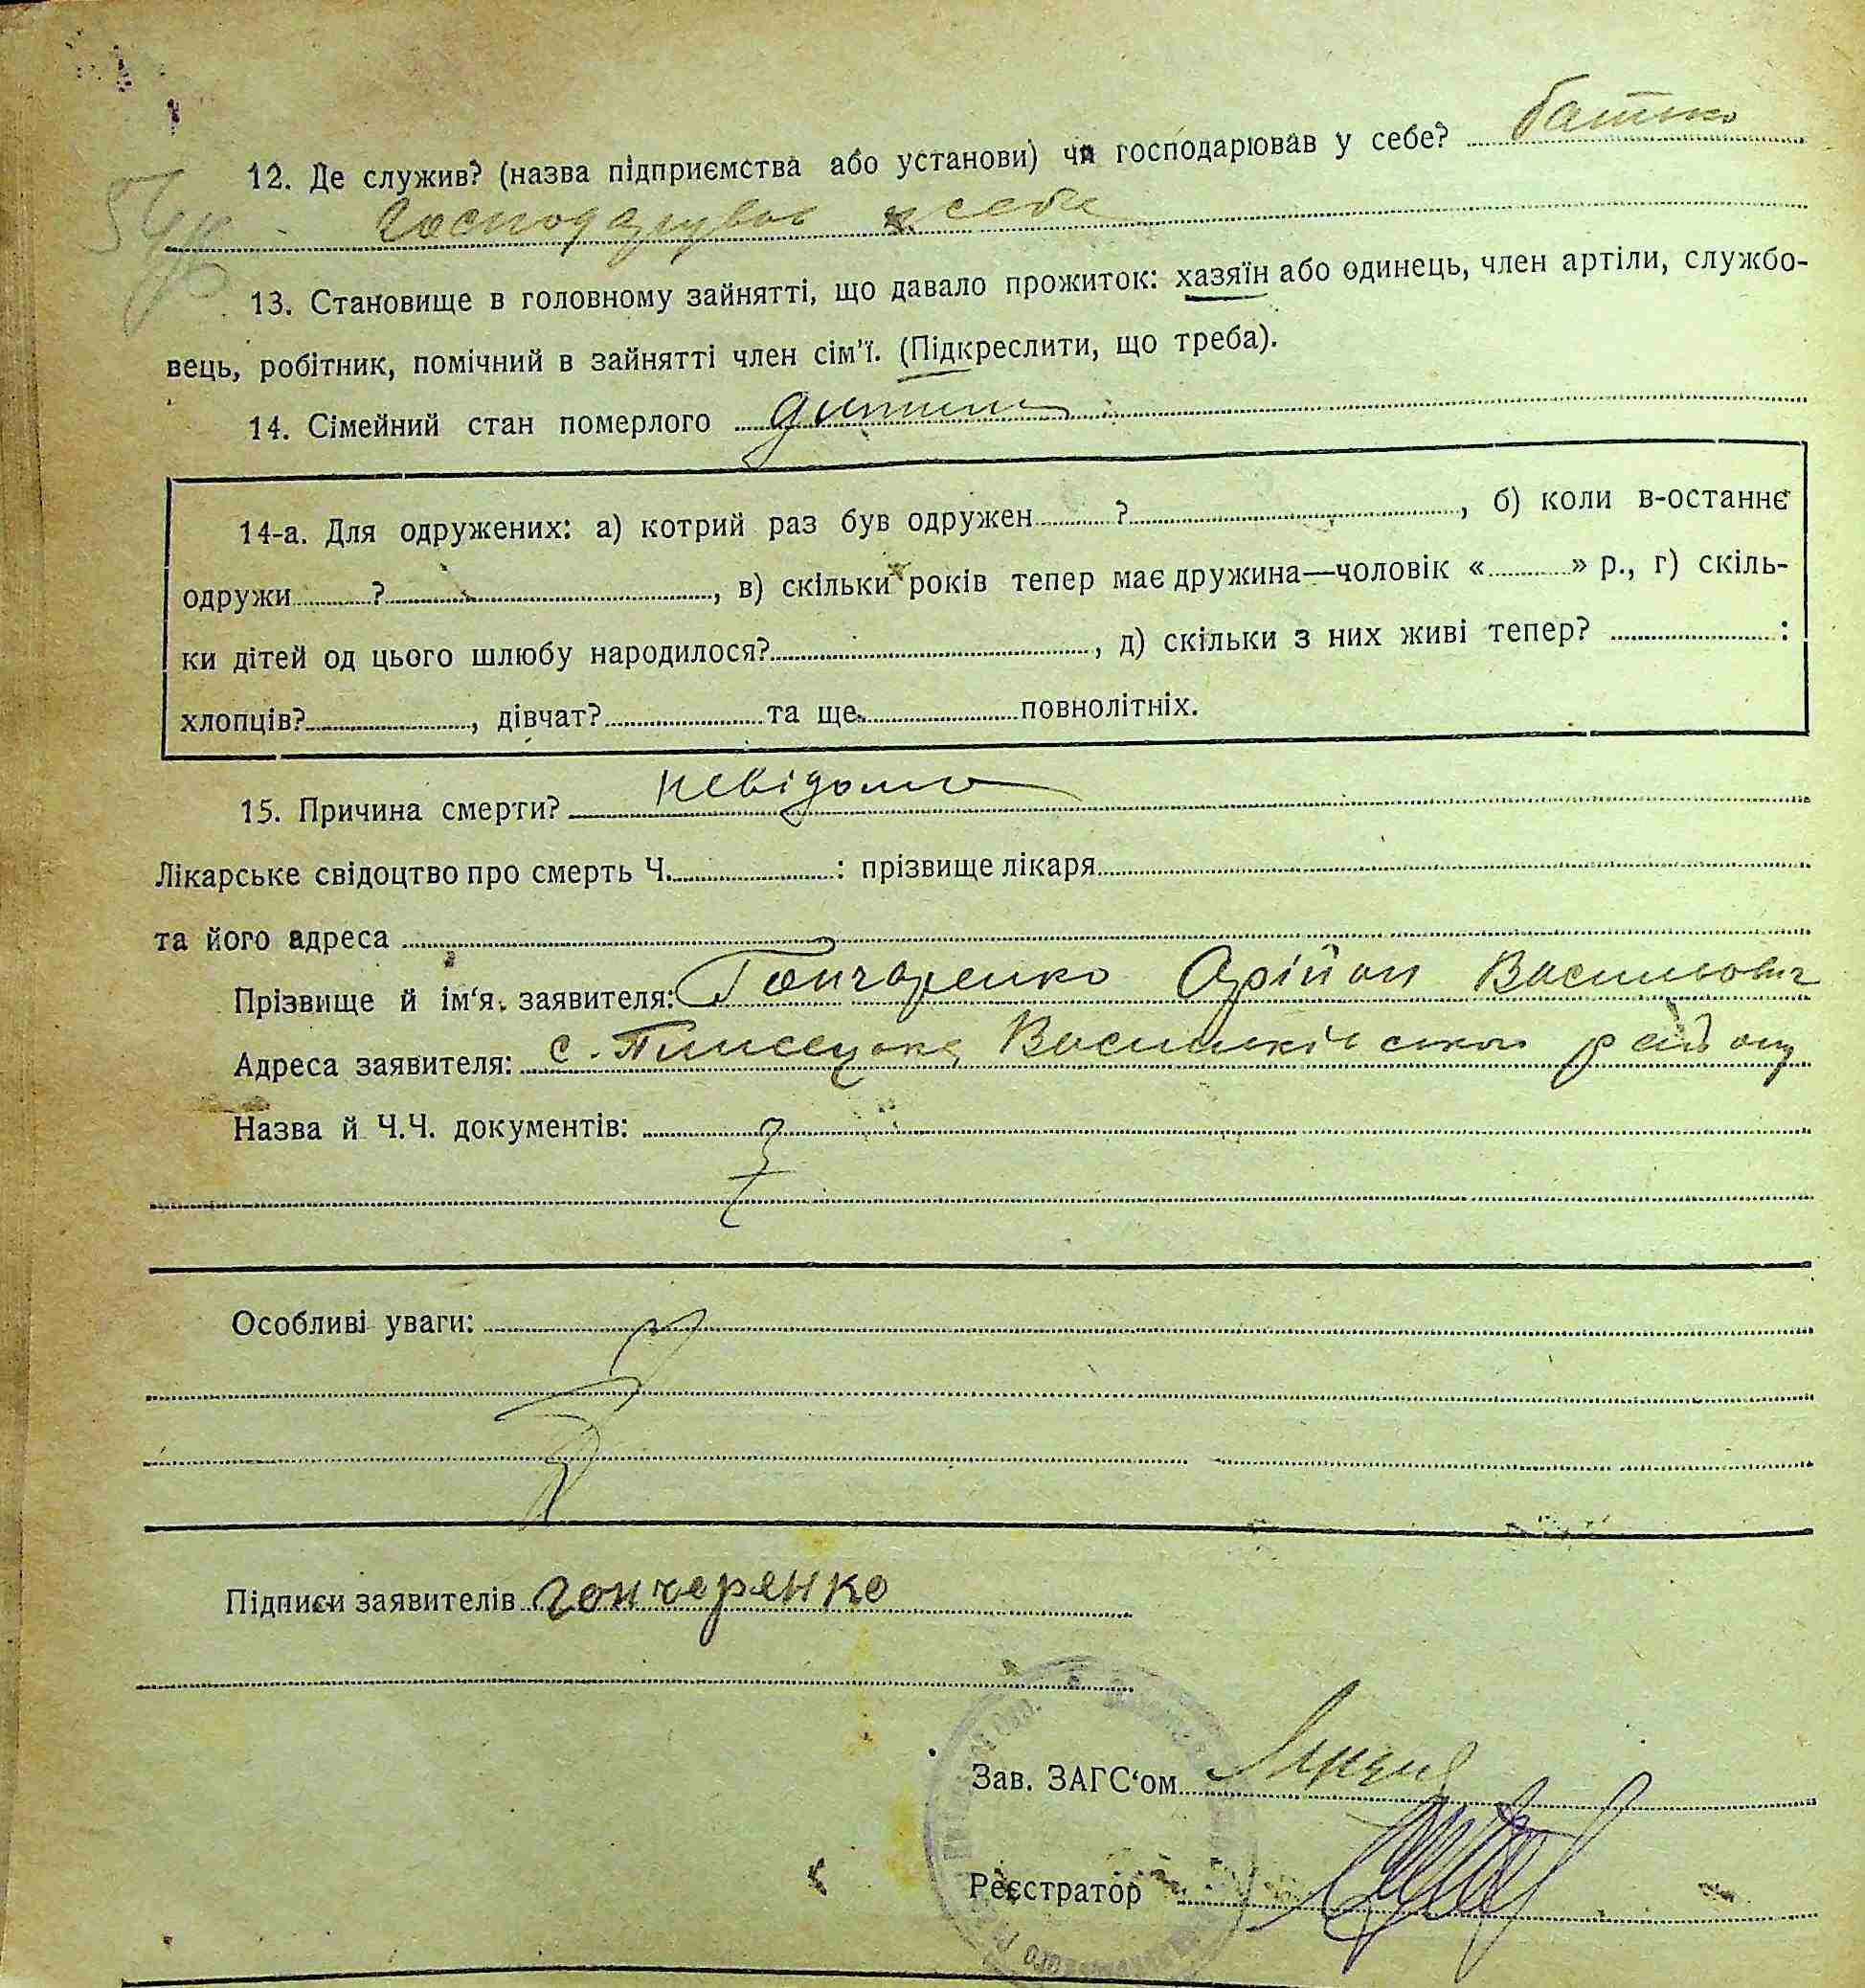 12. Де служив? (назва підприємства або установи) чи господарював у себе? батько
господарував у себе
13. Становище в головному зайнятті, що давало прожиток: хазяїн або одинець, член артіли, службо-
вець, робітник, помічний в зайнятті член сім'ї. (Підкреслити, що треба).
14. Сімейний стан померлого дитина
14-а. Для одружених: а) котрий раз був одружен ?, б) коли в-останнє
одружи ?, в) скільки років тепер має дружина—чоловік « » р., г) скіль-
ки дітей од цього шлюбу народилося?, д) скільки з них живі тепер? :
хлопців? , дівчат? та ще повнолітніх.
15. Причина смерти? невідомо
Лікарське свідоцтво про смерть Ч. : прізвище лікаря
та його адреса
Прізвище й ім'я заявителя: Гончаренко Васильович
Адреса заявителя: с. Васильківського району
Назва й Ч.Ч. документів:
Особливі уваги:
Підписи заявителів гончеренко
Зав. ЗАГС'ом
Реєстратор